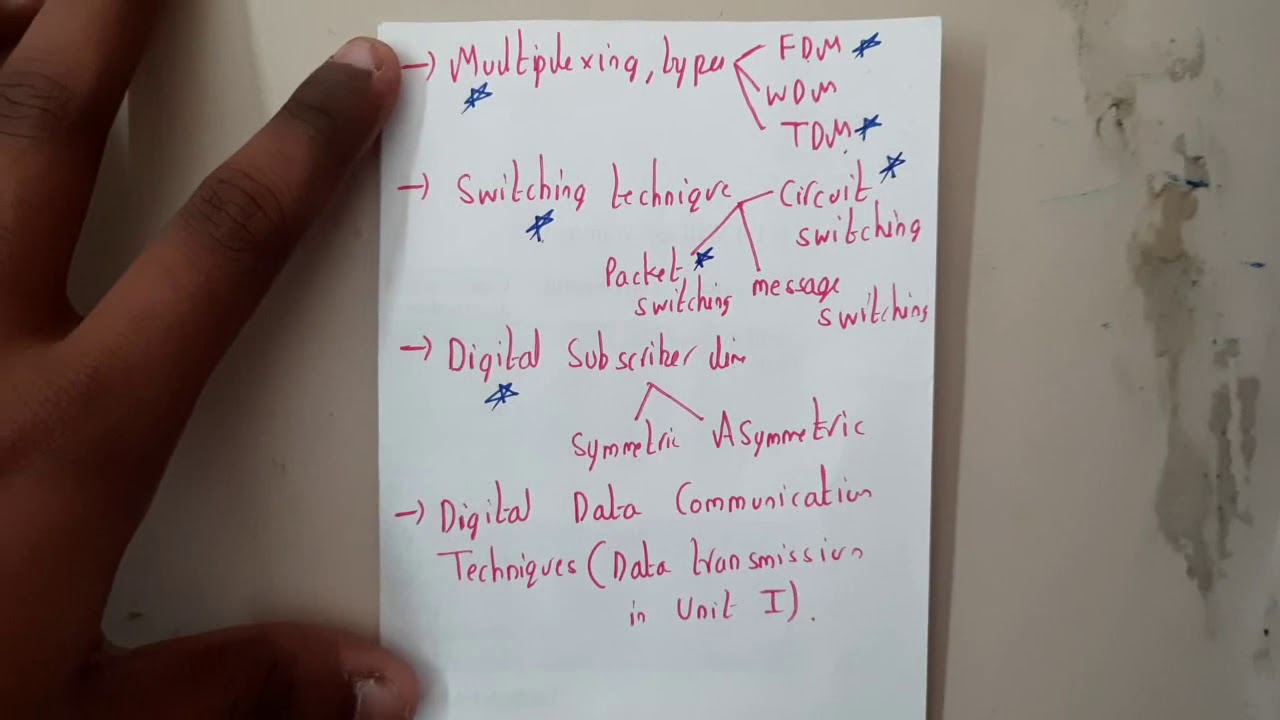 → Multiplexing, types FDM
WDM
TDM
→ Switching technique Circuit
switching
Packet
switching message
switching
→ Digital Subscriber
Symmetric Asymmetric
→ Digital Data Communication
Techniques (Data transmission
in Unit I).